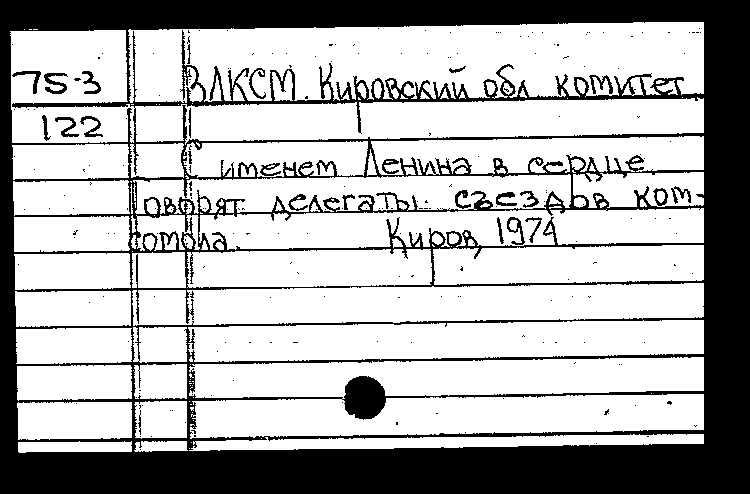 75-3 ВЛКСМ. Кировский обл. комитет
122
С именем Ленина в сердце.
Говорят делегаты съездов ком-
сомола. Киров, 1974